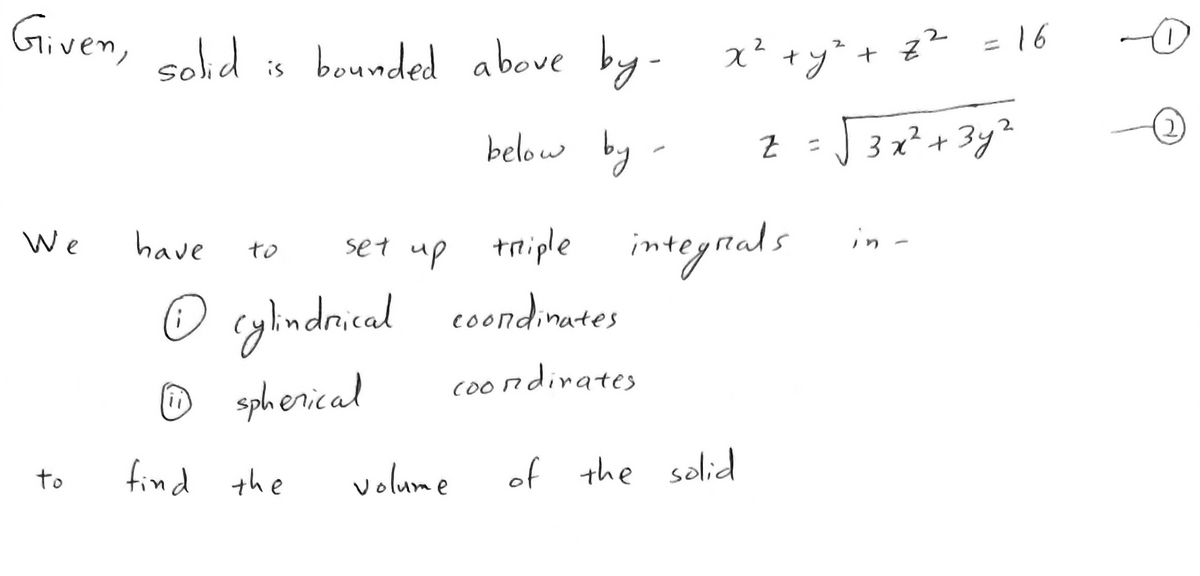 Given, solid is bounded above by - x² + y² + z² = 16 —①
below by - z = √(3x² + 3y²) —②
We have to set up triple integrals in -
ⓘ cylindrical coordinates
ⓘⓘ spherical coordinates
to find the volume of the solid